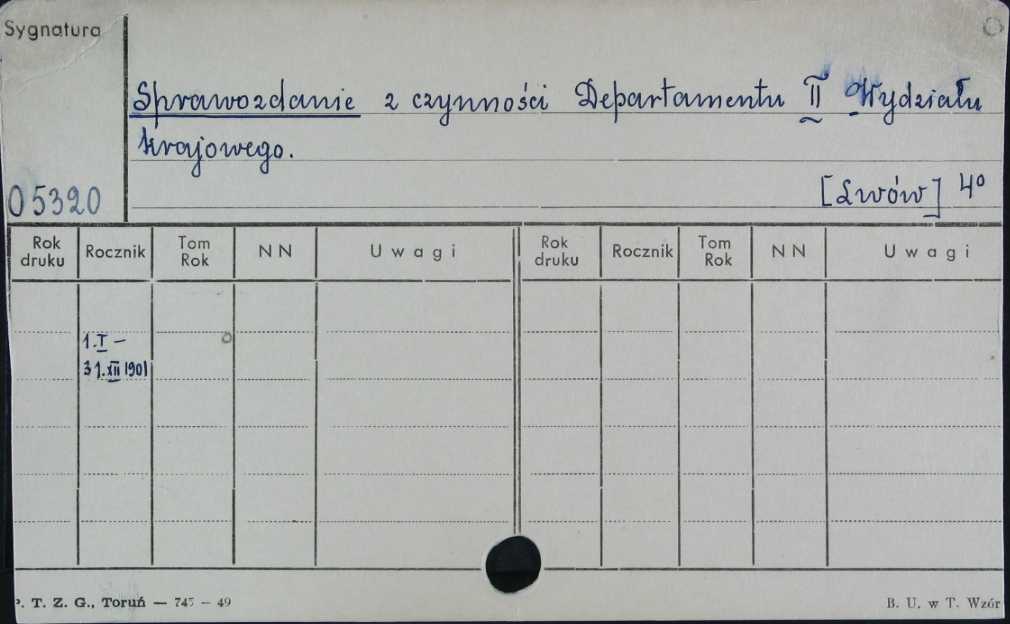 Sygnatura
Sprawozdanie z czynności Departamentu II Wydziału
krajowego.
05320
[Lwów] 4º
Rok druku Rocznik Tom Rok NN Uwagi Rok druku Rocznik Tom Rok NN Uwagi
1.I –
31.XII 1901
P. T. Z. G., Toruń — 745 – 49
B. U. w T. Wzór